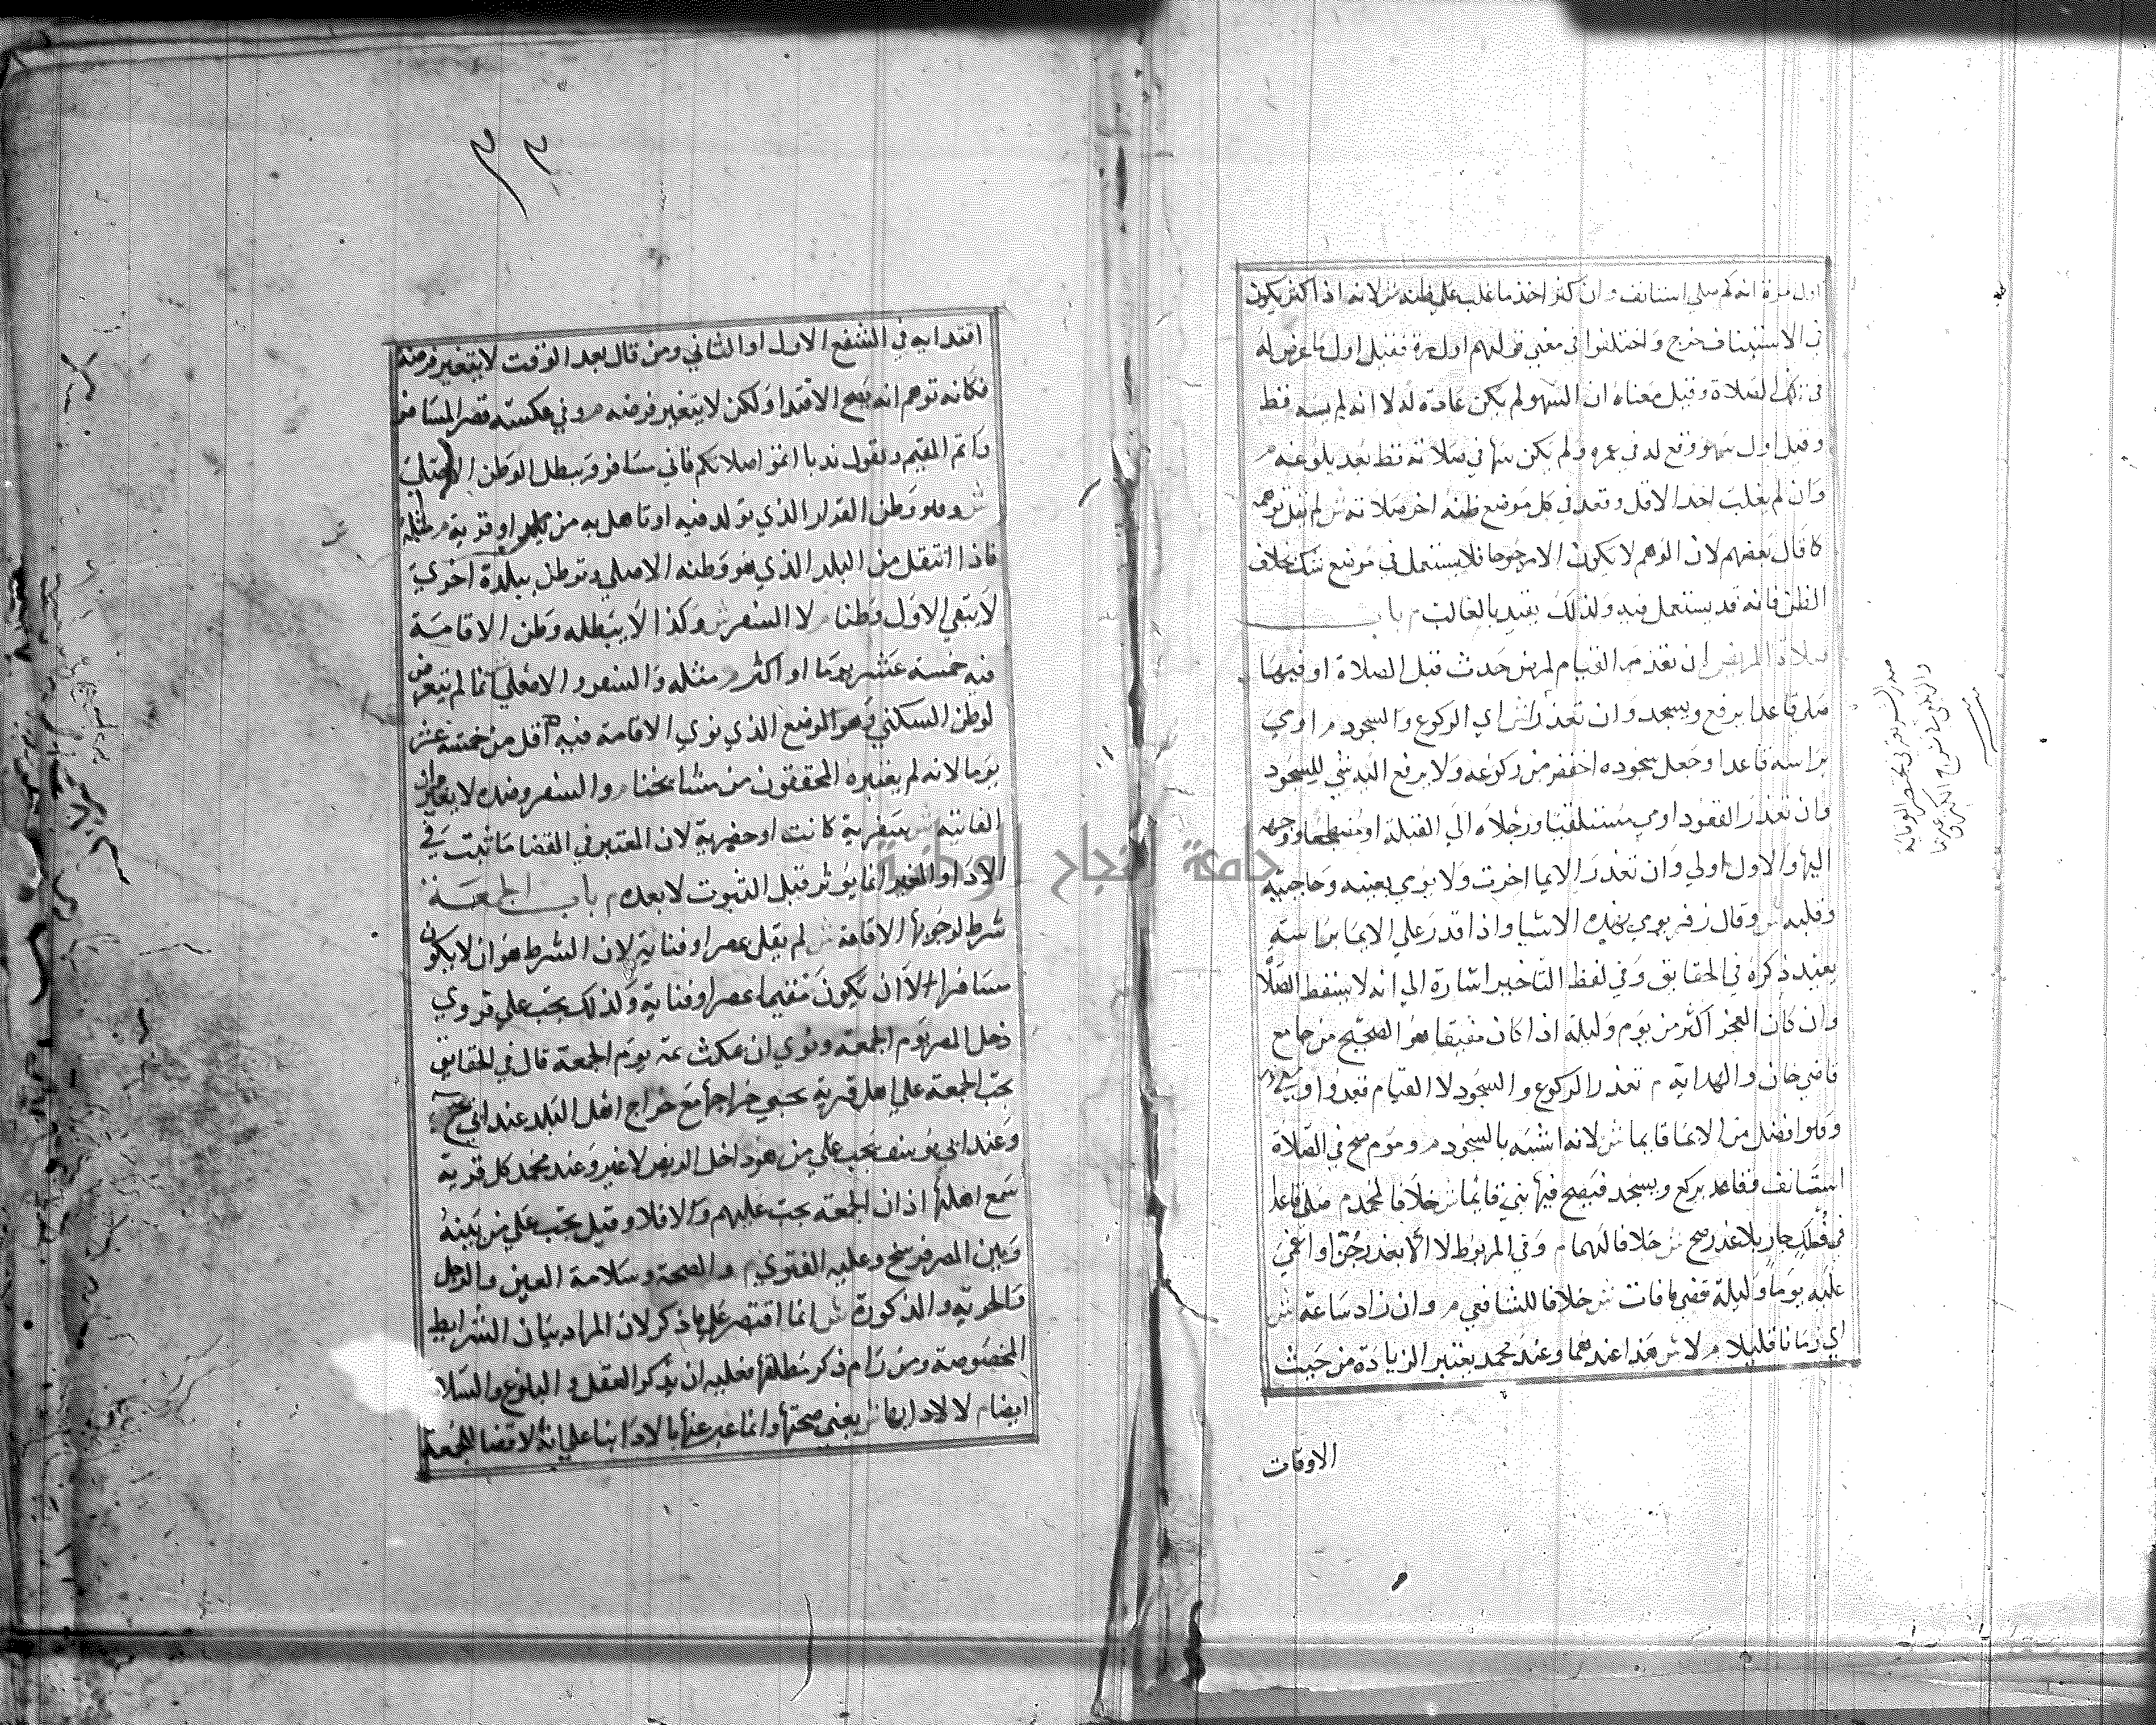 اول مرة انه كم صلي استانف وان كثر اخذ ما غلب علي ظنه ش لانه اذا كثر يكون
في الاستيناف حرج واختلفوا في معني قولهم اول مرة فقيل اول ما عرض له
في تلك الصلاة وقيل معناه ان السهو لم يكن عادة له لا انه لم يسه قط
وقيل اول سهو وقع له في عمره ولم يكن سها في صلاته قط بعد بلوغه م
وان لم يغلب اخذ الاقل وقعد في كل موضع ظنه اخر صلاته ش لم يقل توهمه
كما قال بعضهم لان الوهم لا يكون الا مرجوحا فلا يستعمل في موضع الشك بخلاف
الظن فانه قد يستعمل فيه ولذلك يقيد بالغالب م باب
صلاة المريض ان تعذر القيام لمرض حدث قبل الصلاة او فيها
صلي قاعدا يركع ويسجد وان تعذرا ش اي الركوع والسجود م اومي
براسه قاعدا وجعل سجوده اخفض من ركوعه ولا يرفع اليه شي للسجود
وان تعذر القعود اومي مستلقيا ورجلاه الي القبلة او مضطجعا ووجهه
اليها والاول اولي وان تعذر الايما اخرت ولا يومي بعينيه وحاجبيه
وقلبه ش وقال زفر يومي بهذه الاشيا واذا قدر علي الايما براسه
يعيد ذكره في الحقايق وفي لفظ التاخير اشارة الي انه لا يسقط الصلاة
وان كان العجز اكثر من يوم وليلة اذا كان مفيقا هو الصحيح من جامع
قاضي خان والهداية م تعذر الركوع والسجود لا القيام قعد واومي
وهو افضل من الايما قايما ش لانه اشبه بالسجود م وموم صح في الصلاة
استانف وقاعد يركع ويسجد فيصح فيها بني قايما ش خلافا لمحمد م صلي قاعدا
في فلك جار بلا عذر صح ش خلافا لهما م وفي المربوط لا الا بعذر جن او اغمي
عليه يوما وليلة قضي ما فات ش خلافا للشافعي م وان زاد ساعة ش
اي زمانا قليلا م لا ش هذا عندهما وعند محمد يعتبر الزيادة من حيث
الاوقات
صدر الشريعة في مختصر الوقاية
٣٣
اقتدايه في الشفع الاول او الثاني ومن قال بعد الوقت لا يتغير فرضه
فكانه توهم انه يصح الاقتدا ولكن لا يتغير فرضه م وفي عكسه قصر المسافر
واتم المقيم ويقول ندبا اتموا صلاتكم فاني مسافر ويبطل الوطن الاصلي
ش وهو وطن القرار الذي تولد فيه او تاهل به من بلد او قرية م مثله
فاذا انتقل من البلد الذي هو وطنه الاصلي وتوطن ببلدة اخري
لا يبقي الاول وطنا م لا السفر ش وكذا لا يبطله وطن الاقامة
فيه خمسة عشر يوما او اكثر م مثله والسفر والاصلي انما لم يتعرض
لوطن السكني وهو الموضع الذي نوي الاقامة فيه اقل من خمسة عشر
يوما لانه لم يعتبره المحققون من مشايخنا م والسفر وضده لا يغيران
الفايتة ش سفرية كانت او حضرية لان المعتبر في القضا ما ثبت في
الادا والمغير انما يوثر قبل الثبوت لا بعده م باب الجمعة
شرط لوجوبها الاقامة ش لم يقل بمصر او فنايه لان الشرط هو ان لا يكون
مسافرا لا ان يكون مقيما بمصر او فنايه ولذلك يجب علي قروي
دخل المصر يوم الجمعة ونوي ان يمكث ثمه يوم الجمعة قال في الحقايق
تجب الجمعة علي اهل قرية يجبي خراجها مع خراج اهل البلد عند ابي ح
وعند ابي يوسف يجب علي من هو داخل الربض لا غير وعند محمد كل قرية
سمع اهلها اذان الجمعة يجب عليهم والا فلا وقيل يجب علي من بينه
وبين المصر فرسخ وعليه الفتوي م والصحة وسلامة العين والرجل
والحرية والذكورة ش انما اقتصر علي ما ذكر لان المراد بيان الشرايط
المخصوصة ومن رام ذكر مطلقها فعليه ان يذكر العقل والبلوغ والاسلام
ايضا م لا لادايها ش يعني صحتها وانما عبر عنها بالادا بنا علي انه لا قضا للجمعة
جامعة النجاح الوطنية